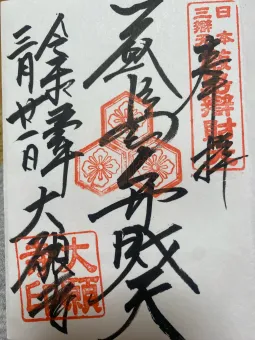 奉拝
日本
三辯天
嚴島辯財
嚴島弁財天
令和
三月廿一日
大願寺
大願
寺印